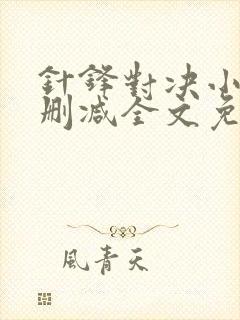 針鋒對決小
刪減全文免
風青天